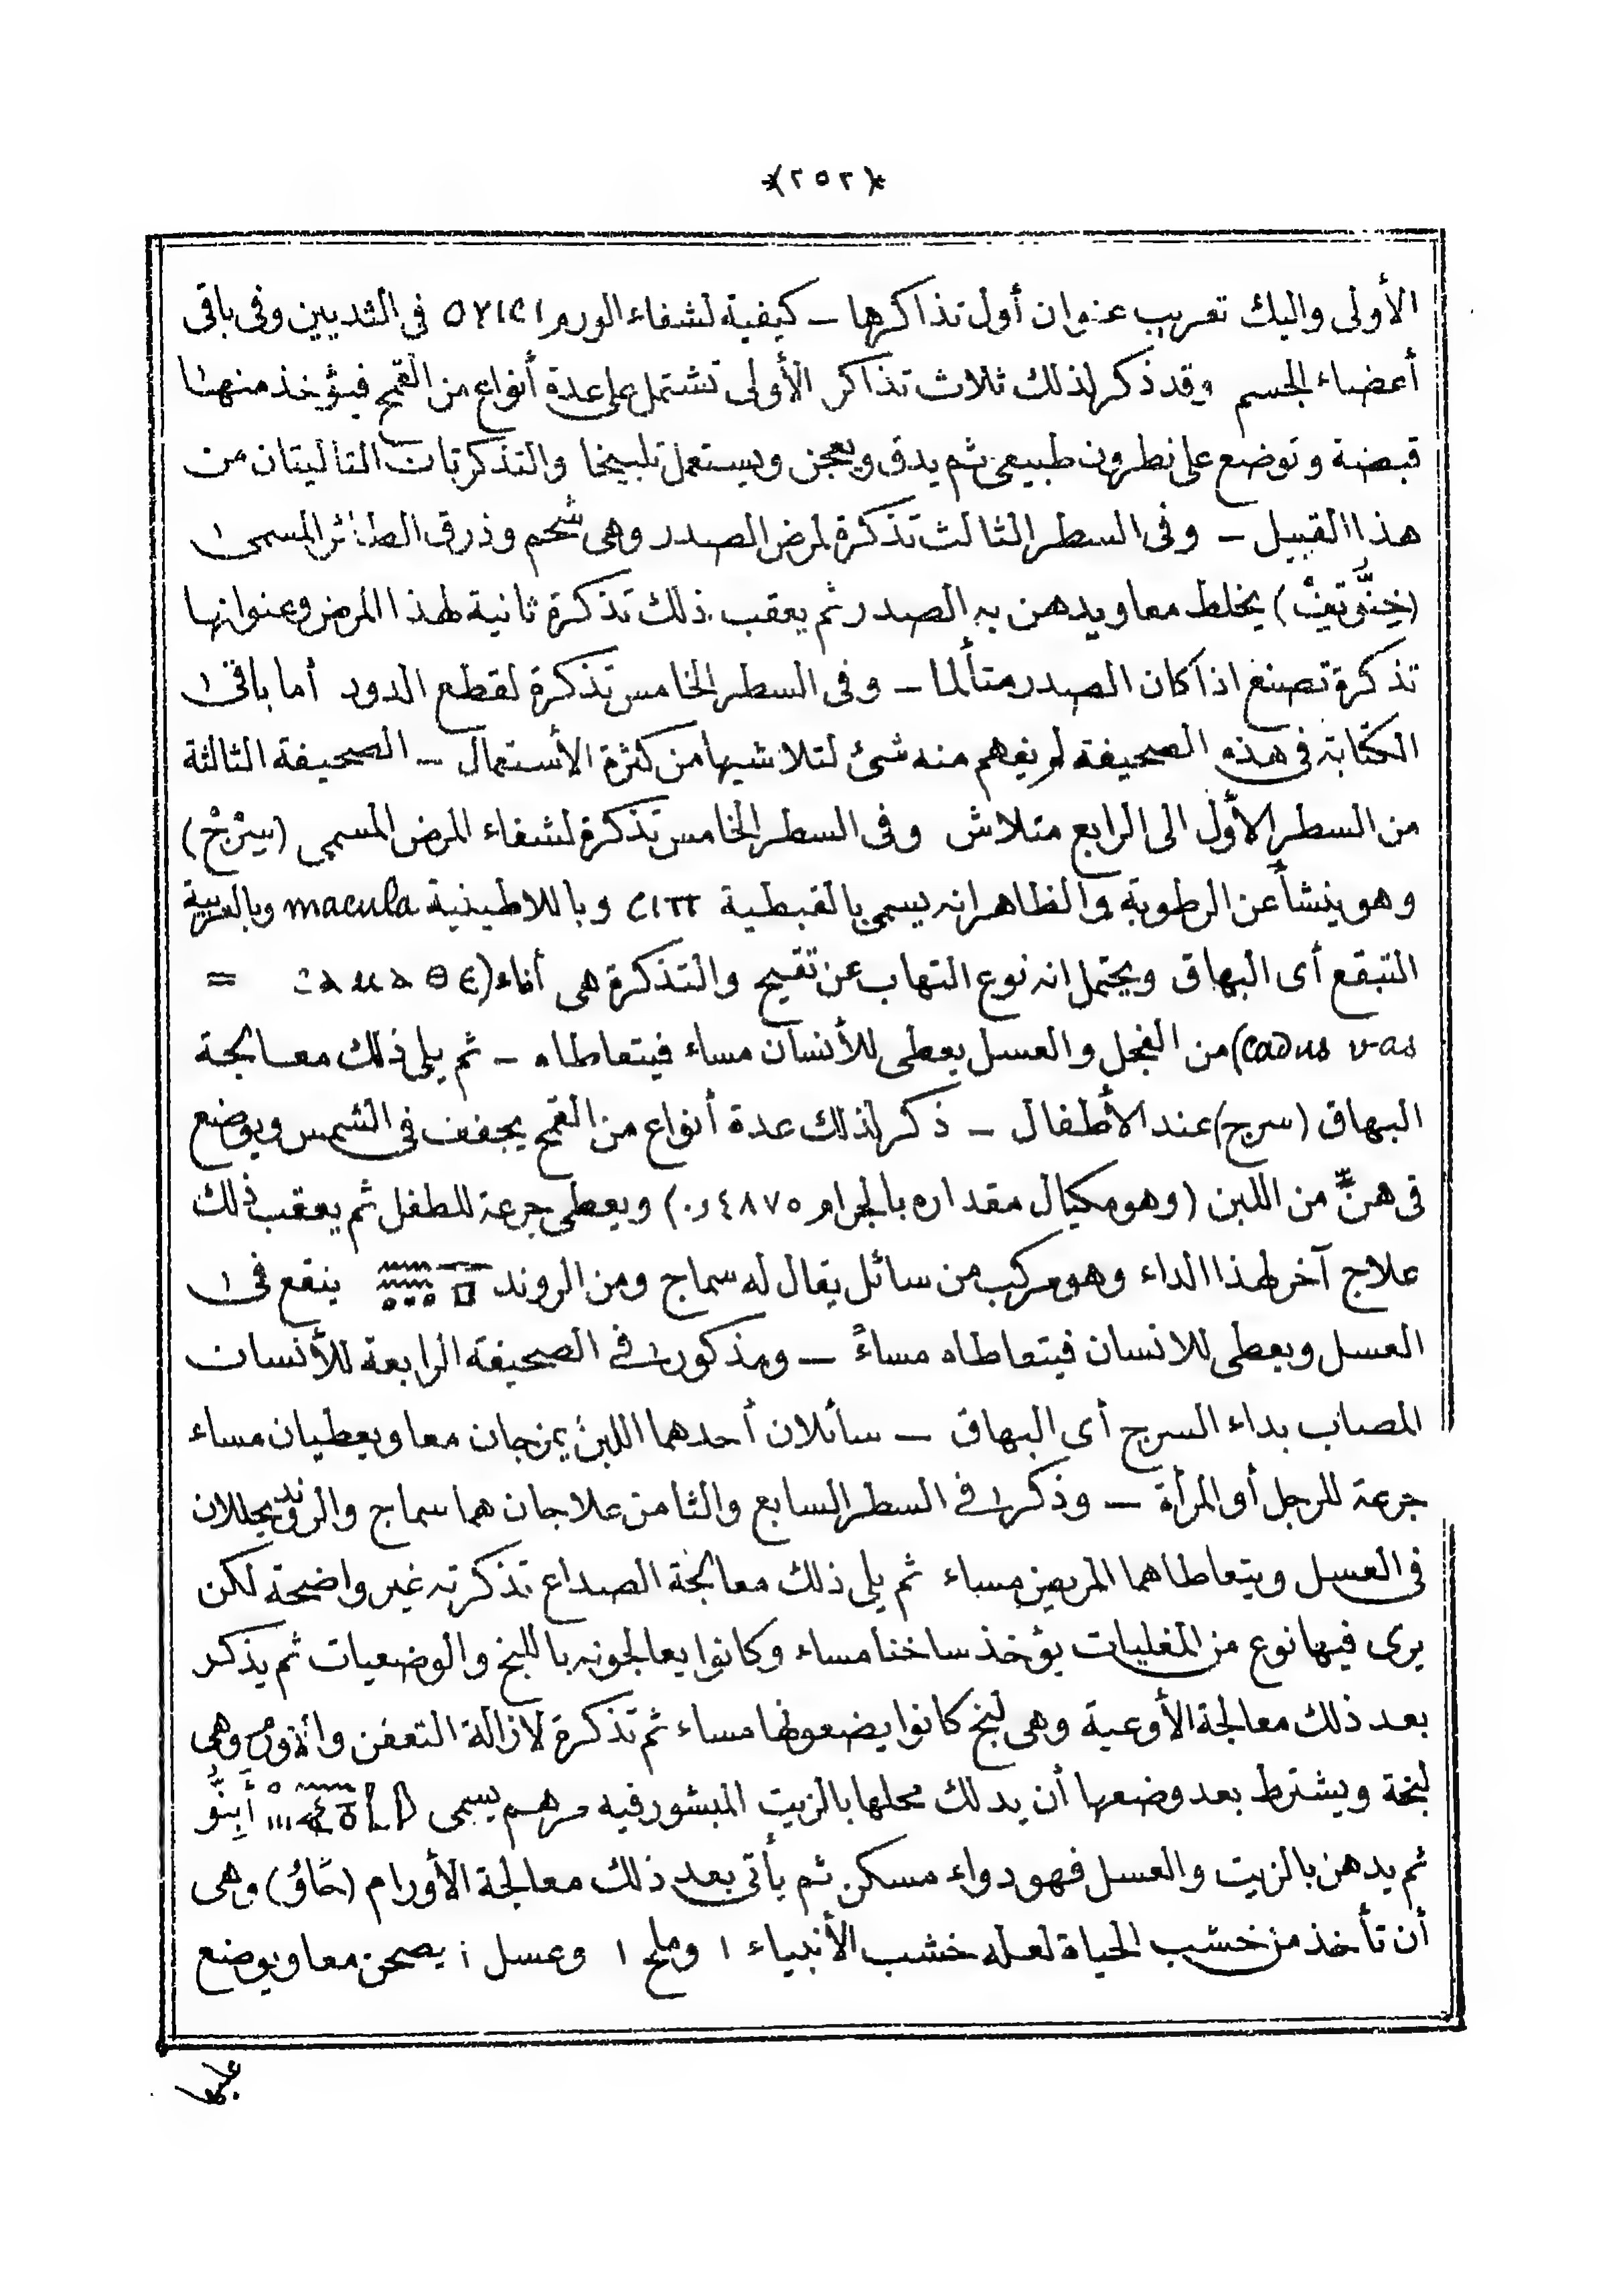 *(٢٥٢)*
الأولى واليك تعريب عنوان أول تذاكرها – كيفية لشفاء الورم في الثديين وفى باقى
أعضاء الجسم وقد ذكر لذلك ثلاث تذاكر الأولى تشتمل على عدة أنواع من القمح فيؤخذ منها
قبضة وتوضع على نطرون طبيعى ثم يدق ويعجن ويستعمل تلبيخا والتذكرتان التاليتان من
هذا القبيل – وفى السطر الثالث تذكرة لمرض الصدر وهى شحم وذرق الطائر المسمى
يخلط معا ويدهن به الصدر ثم يعقب ذلك تذكرة ثانية لهذا المرض وعنوانها
تذكرة تصنع اذا كان الصدر متألما – وفى السطر الخامس تذكرة لقطع الدود أما باقى
الكتابة فى هذه الصحيفة لم يفهم منه شئ لتلاشيها من كثرة الأستعمال – الصحيفة الثالثة
من السطر الأول الى الرابع متلاش وفى السطر الخامس تذكرة لشفاء المرض المسمى (سرج)
وهو ينشأ عن الرطوبة والظاهر انه يسمى بالقبطية وباللاطينية macula وبالعربية
التبقع أى البهاق ويحتمل انه نوع التهاب عن تقيح والتذكرة هى أناء ( =
cadus vas) من الفجل والعسل يعطى للأنسان مساء فيتعاطاه – ثم يلى ذلك معالجة
البهاق (سرج) عند الأطفال – ذكر لذلك عدة أنواع من القمح يجفف فى الشمس ويوضع
فى هنّ من اللبن (وهو مكيال مقداره بالجرام ٤٨٧٥ر٠) ويعطى جرعة للطفل ثم يعقب ذلك
علاج آخر لهذا الداء وهو مركب من سائل يقال له سماج ومن الروند ينقع فى
العسل ويعطى للانسان فيتعاطاه مساءً – ومذكور فى الصحيفة الرابعة للأنسان
المصاب بداء السرج أى البهاق – سائلان أحدهما اللبن يمزجان معا ويعطيان مساء
جرعة للرجل أو المرأة – وذكر فى السطر السابع والثامن علاجان هما سماج والروند يحللان
فى العسل ويتعاطاهما المريض مساء ثم يلى ذلك معالجة الصداع تذكرته غير واضحة لكن
يرى فيها نوع من المغليات يؤخذ ساخنا مساء وكانوا يعالجونه باللبخ والوضعيات ثم يذكر
بعد ذلك معالجة الأوعية وهى لبخ كانوا يضعونها مساء ثم تذكرة لازالة التعفن وهى
لبخة ويشترط بعد وضعها أن يدلك محلها بالزيت المبشور فيه مرهم يسمى
ثم يدهن بالزيت والعسل فهو دواء مسكن ثم يأتى بعد ذلك معالجة الأورام وهى
أن تأخذ من خشب الحياة لعله خشب الأنبياء ١ وملح ١ وعسل ١ يصحن معا ويوضع